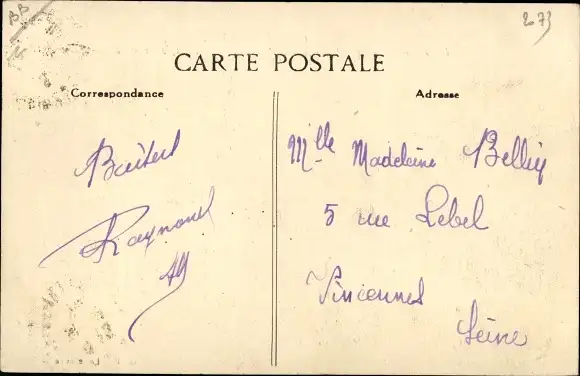 BB
273
CARTE POSTALE
Correspondance
Adresse
Baisers
Raymond
Mlle Madeleine
5 rue Lebel
Vincennes
Seine